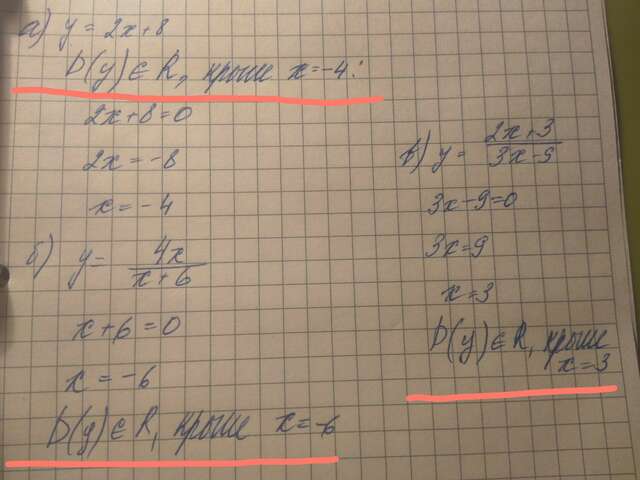 а) y = 2x+8
D(y) ∈ R, кроме x=-4:
2x+8=0
2x=-8
x=-4
б) y= 4x/(x+6)
x+6=0
x=-6
D(y) ∈ R, кроме x=-6
в) y= (2x+3)/(3x-9)
3x-9=0
3x=9
x=3
D(y) ∈ R, кроме
x=3